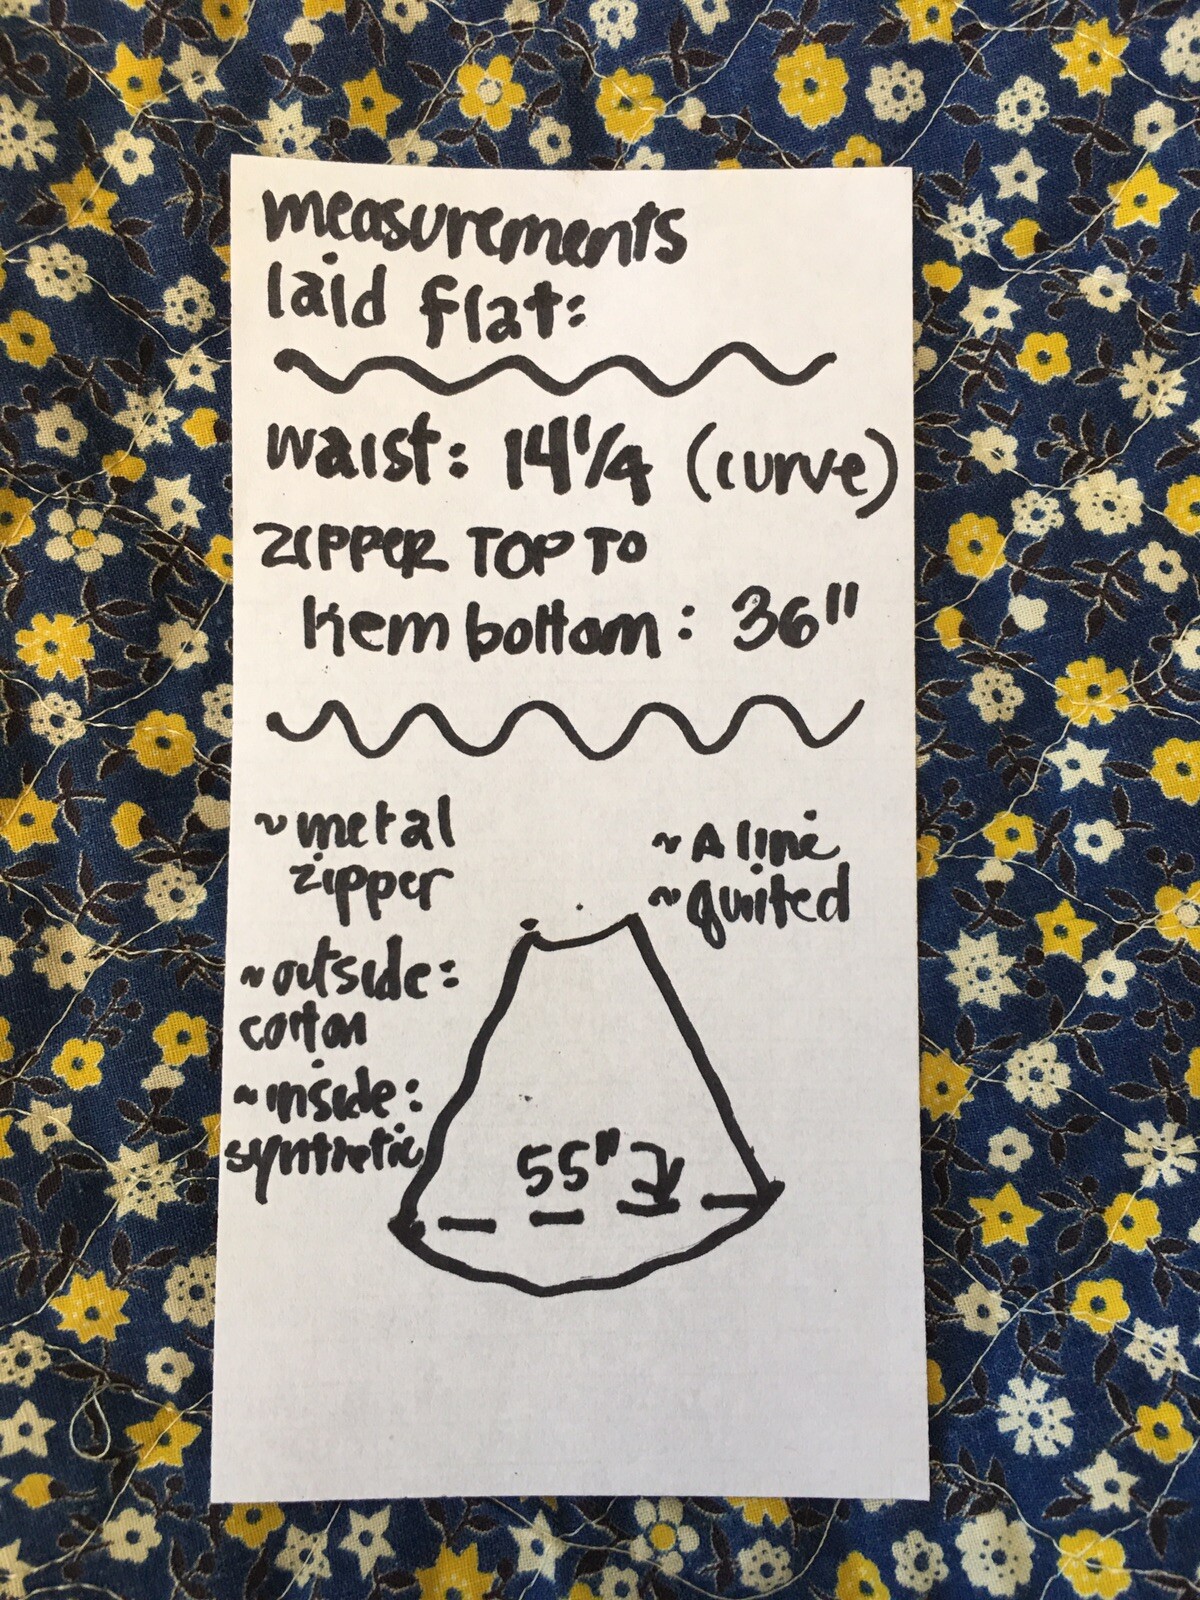 measurements
laid flat:
waist: 14 1/4 (curve)
ZIPPER TOP TO
hem bottom: 36"
~ metal
zipper
~ A line
~ quilted
~ outside:
cotton
~ inside:
synthetic
55"